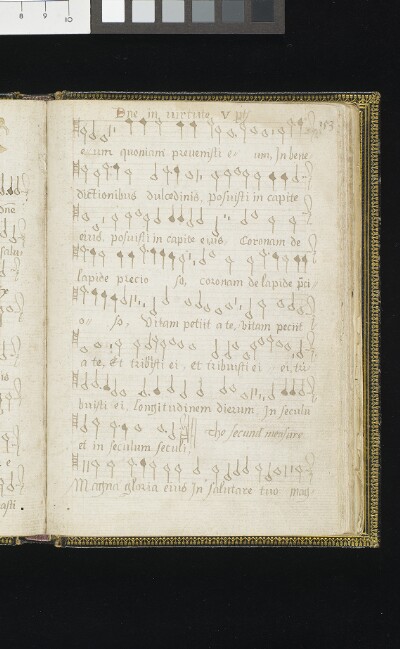 Dne in virtute. V pts
153
eum quoniam prevenisti e um. In bene-
dictionibus dulcedinis. posuisti in capite
eius. posuisti in capite eius Coronam de
lapide precio so, coronam de lapide p̃ci-
o so, Vitam petiit a te, vitam petiit
a te, Et tribisti ei, et tribuisti ei ei, tri-
buisti ei, longitudinem dierum, In seculũ
The second measure
et in seculum seculi,
Magna gloria eius In salutare tuo mag-
8 9 10